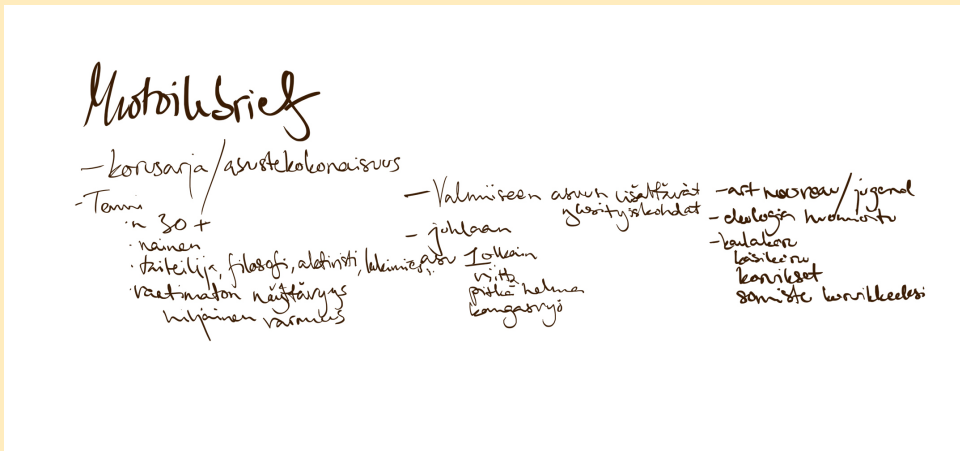 Muotoilubrief
- korusarja/asustekokonaisuus
- Teemu
· n 30+
· nainen
· taiteilija, filosofi, aktivisti, lakimies,
· vaatimaton näyttävyys
hiljainen varmuus
- Valmiiseen asuun lisättävät
yksityiskohdat
- juhlaan
asu 1 olkain
viitta
pitkä helma
kangasvyö
- art nouveau/jugend
- ekologia huomioitu
- kaulakoru
käsikoru
korvikset
somiste korvikkeeksi